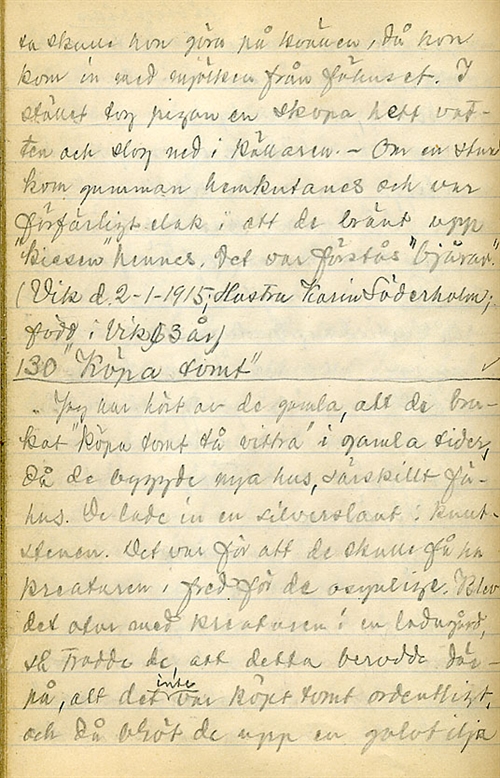 ta skulle hon göra på kvällen, då hon
kom in med mjölken från fähuset. I
stället tog pigan en skopa hett vat-
ten och slog ned i källaren. – Om en stund
kom gumman hemkutandes och var
förfärligt elak i att de bränt upp
"kissen" hennes. Det var förstås "bjäran".
(Vik d. 2-1-1915; Hustru Karin Söderholm,
född i Vik, 53 år)
130 "Köpa tomt"
"Jag har hört av de gamla, att de bru-
kat "köpa tomt tå vittra" i gamla tider,
då de byggde nya hus, särskilt fä-
hus. De lade in en silverslant i knut-
stenen. Det var för att de skulle få ha
kreaturen i fred för de osynlige. Blev
det ofur med kreaturen i en ladugård,
så trodde de, att detta berodde där-
på, att det inte var köpt tomt ordentligt,
och då bröt de upp en golvtilja